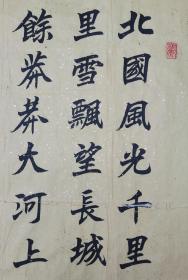 北國風光千里
里雪飄望長城
餘莽莽大河上